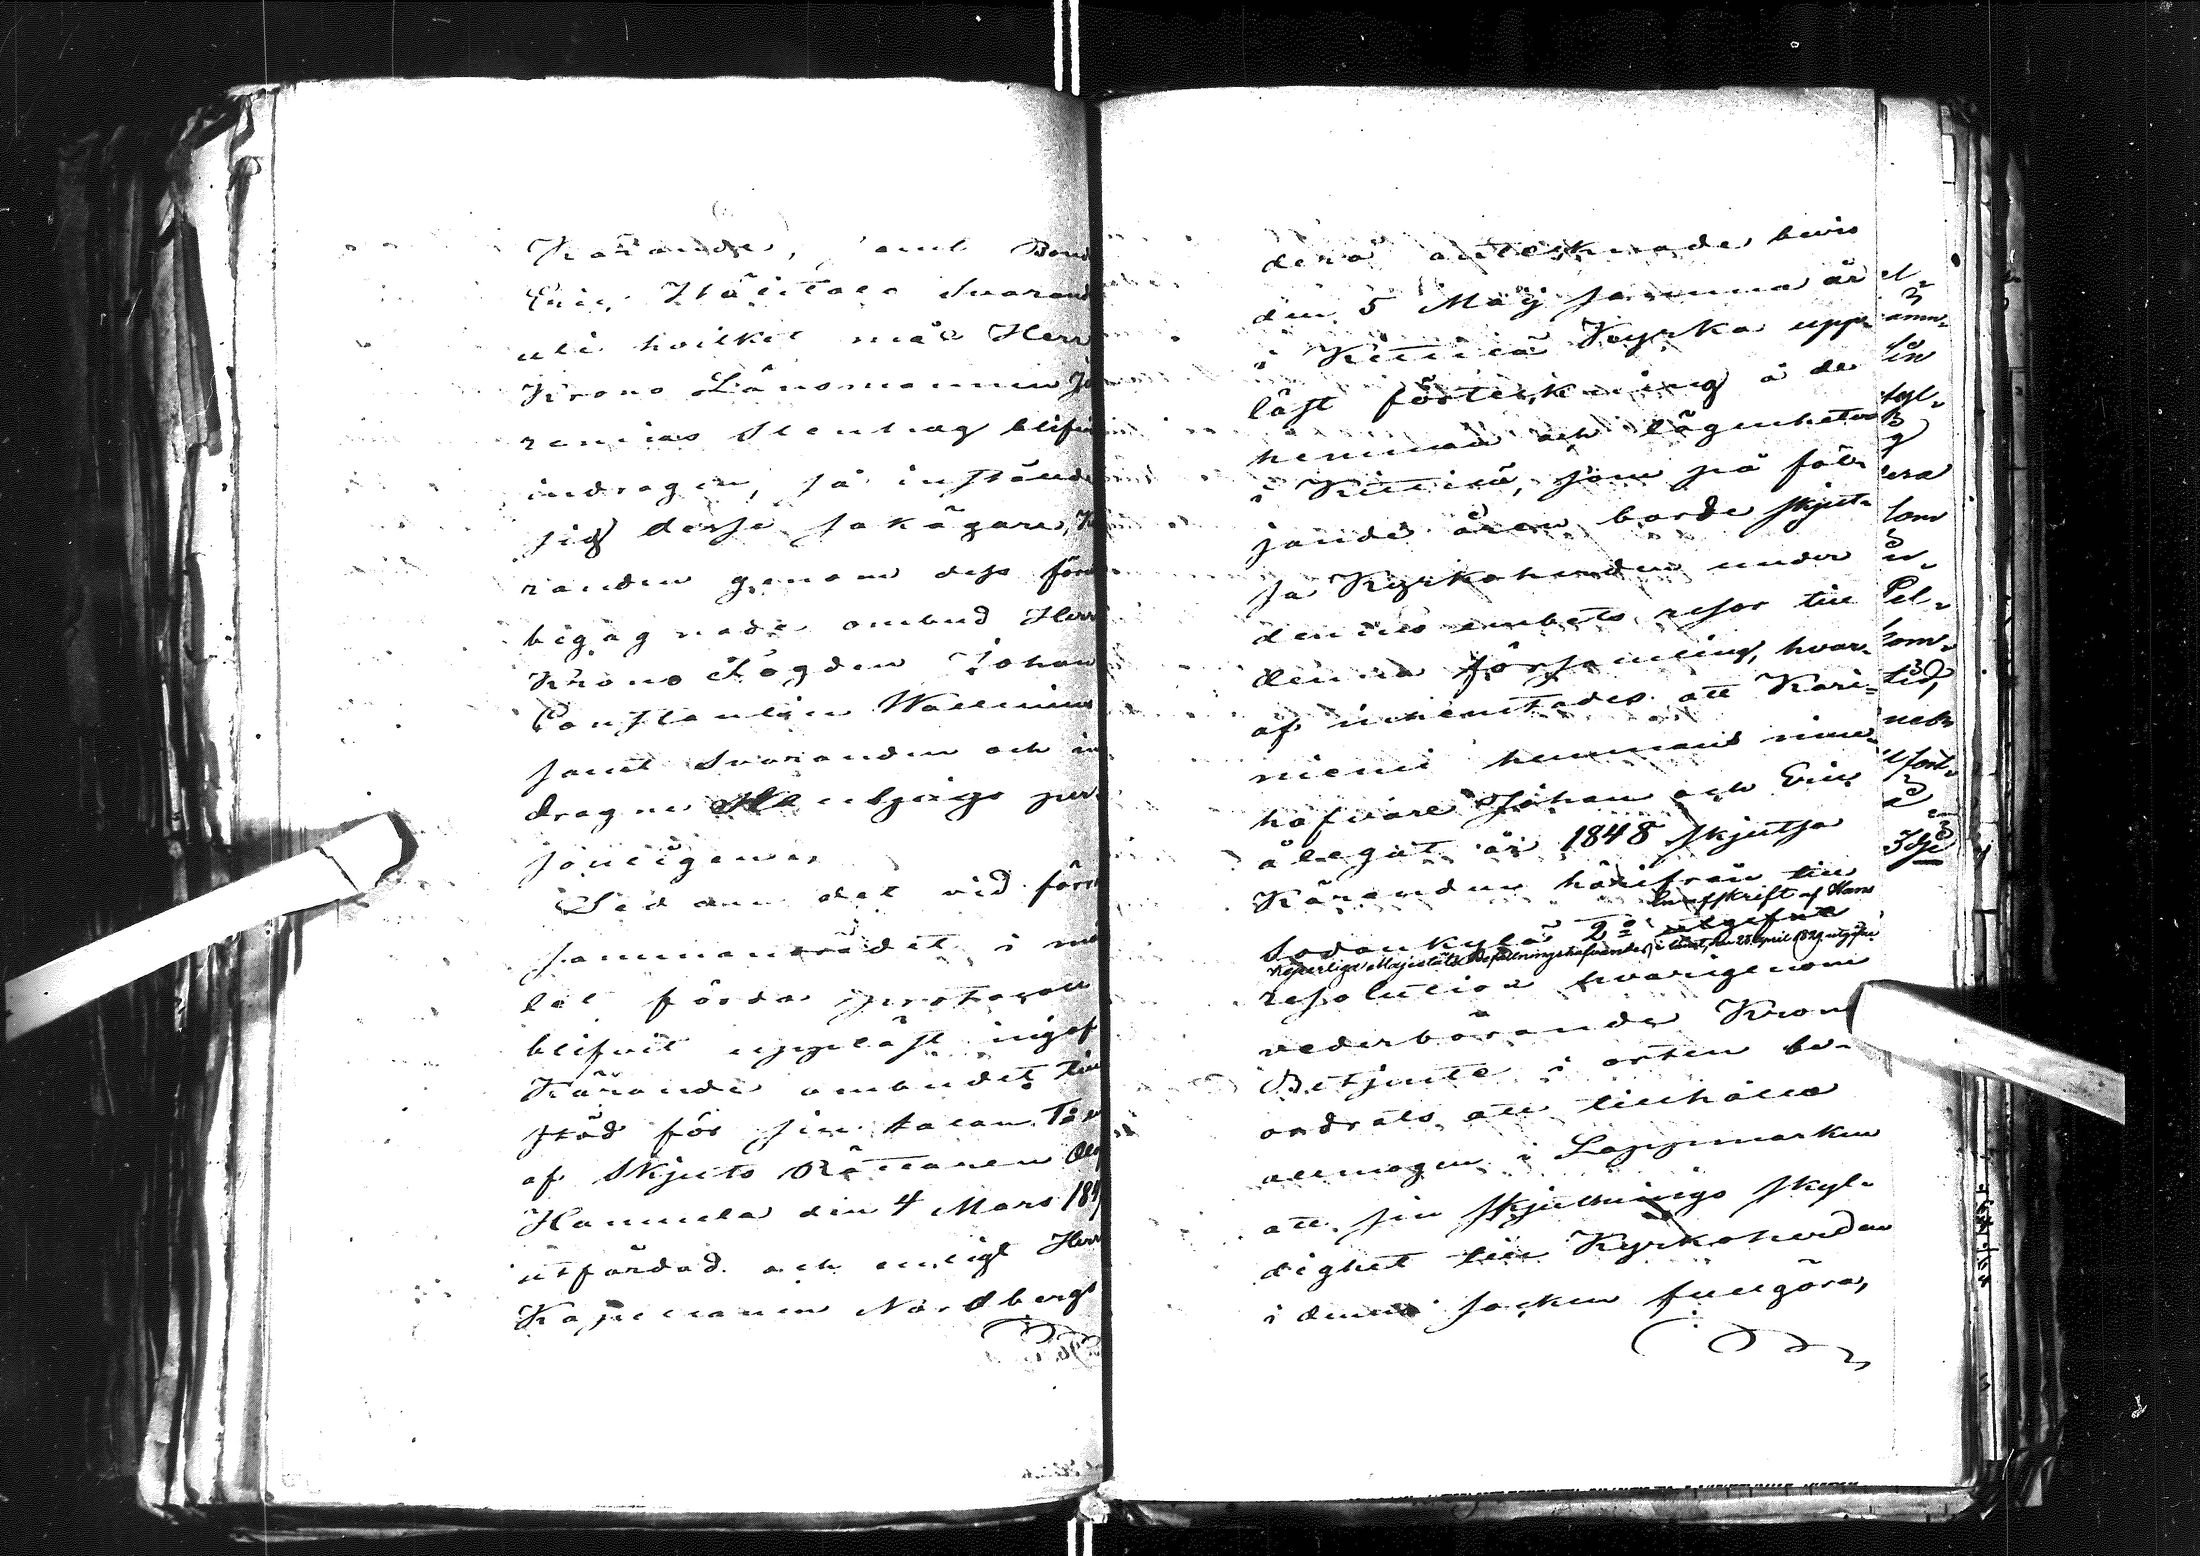 Kärande, samt Bond
Eric Hälitalo Svarand
uti hvilket mål Herr
Krono Länsmannen Je
remias Stenbag blifvi
indragen, så instäld
sig desse sakägare, Kä
randen genom dess förr
begagnade ombud Herr
Krono Fogden Johan
Constantin Wallenius
samt Svaranden och in
dragne Stenbag per-
sonligen.
Sedan det vid förra
sammanträdet i må
let förda protocoll
blifvit uppläst ingaf
Kärande ombudet till
stöd för sin talan
af Skjuts Rättaren Olof
Hannula den 4 Mars 184
utfärdad och enligt Herr
Kapellanen Nordbergs
derå antecknade bevis
den 5 Maj samma år
i Kittilä Kyrka upp-
läst förteckning å de
hemman och lägenheter
i Kittilä, som på föl-
jande åren borde skjut-
sa Kyrkoherden under
dennes embets resor till
denna församling, hvar-
af inhemtades att Kari-
niemi hemmans inne-
hafvare Johan och Eric
ålegat år 1848 skjutsa
Käranden härifrån till
Sodankylä 2:o utgifne
en afskrift af Hans
Kejserliga Majestäts Befallningshafvandes i länet, den 28 April 1829 utgifne
resolution hvarigenom
vederbörande Krono
Betjente i orten be-
ordrats att tillhålla
allmogen i Lappmarken
att sin skjutsnings skyl-
dighet till Kyrkoherden
i denna socken fullgöra,